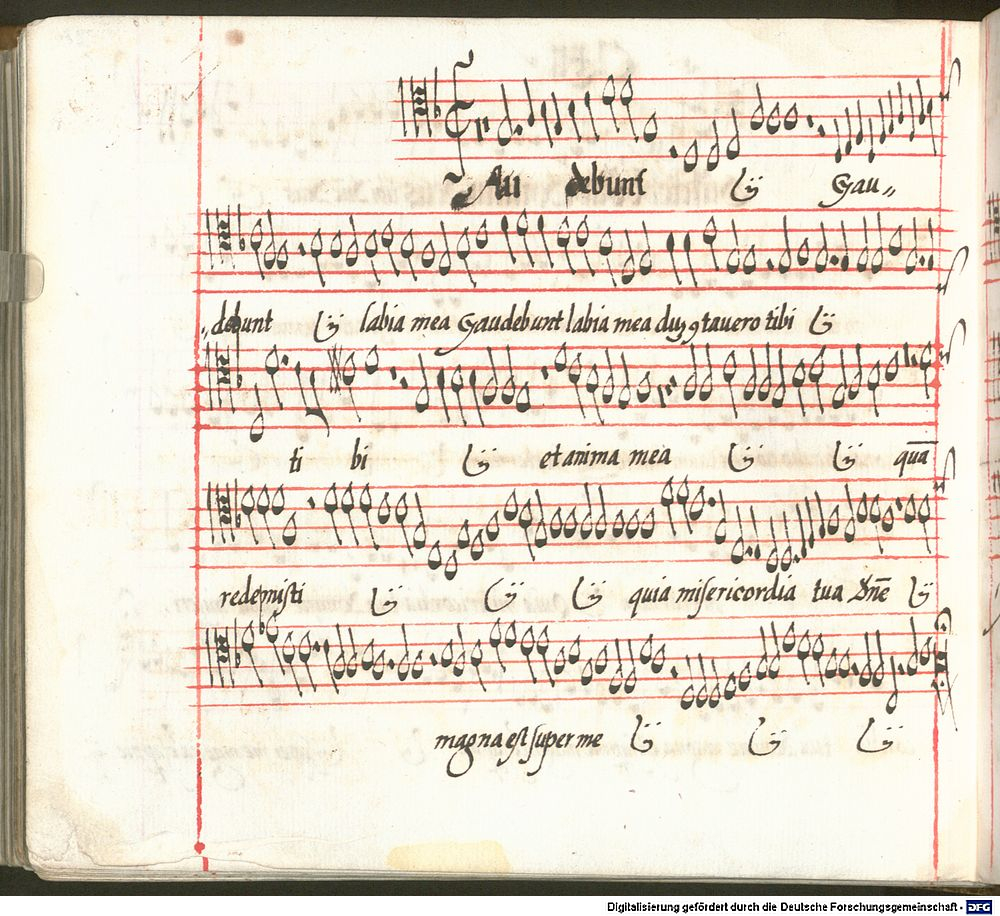 Gau debunt ij Gau„
„debunt ij labia mea Gaudebunt labia mea dum cantavero tibi ij
ti bi ij et anima mea ij ij quā
redemisti ij ij ij quia misericordia tua dñe ij
magna est super me ij ij ij
Digitalisierung gefördert durch die Deutsche Forschungsgemeinschaft - DFG